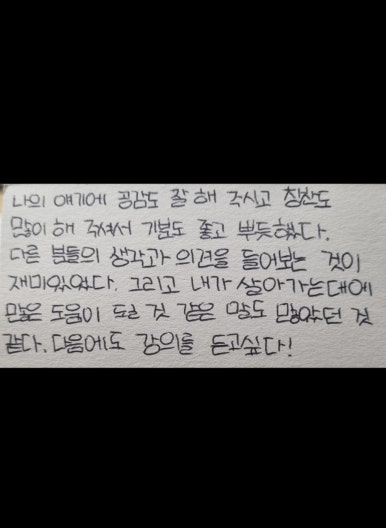 나의 얘기에 공감도 잘 해 주시고 칭찬도
많이 해 주셔서 기분도 좋고 뿌듯했다.
다른 분들의 생각과 의견을 들어보는 것이
재미있었다. 그리고 내가 살아가는데에
많은 도움이 될 것 같은 말도 많았던 것
같다. 다음에도 강의를 듣고싶다!